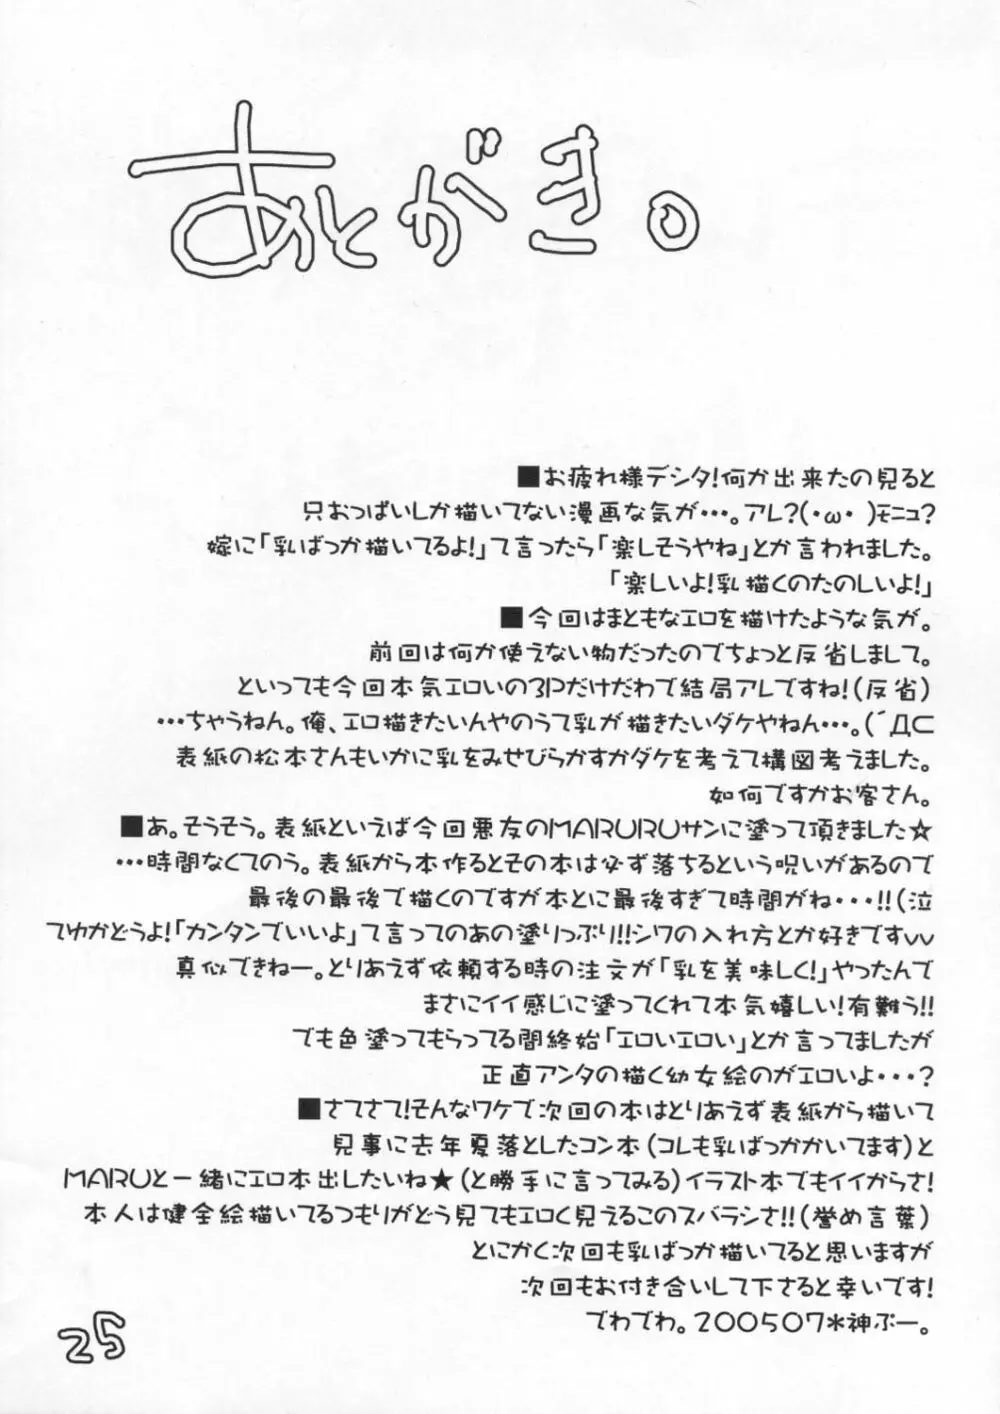 あとがき。
■お疲れ様デシタ!何か出来たの見ると
只おっぱいしか描いてない漫画な気が…。アレ?(・ω・ )モニュ?
嫁に「乳ばっか描いてるよ!」て言ったら「楽しそうやね」とか言われました。
「楽しいよ!乳描くのたのしいよ!」
■今回はまともなエロを描けたような気が。
前回は何か使えない物だったのでちょっと反省しまして。
といっても今回本気エロいの3Pだけだわで結局アレですね!(反省)
…ちゃうねん。俺、エロ描きたいんやのうて乳が描きたいダケやねん…。(´Д⊂
表紙の松本さんもいかに乳をみせびらかすかダケを考えて構図考えました。
如何ですかお客さん。
■あ。そうそう。表紙といえば今回悪友のMARURUサンに塗って頂きました★
…時間なくてのう。表紙から本作るとその本は必ず落ちるという呪いがあるので
最後の最後で描くのですが本とに最後すぎて時間がね・・・!!(泣
てゆかどうよ!「カンタンでいいよ」て言ってのあの塗りっぷり!!シワの入れ方とか好きですvv
真似できねー。とりあえず依頼する時の注文が「乳を美味しく!」やったんで
まさにイイ感じに塗ってくれて本気嬉しい!有難う!!
でも色塗ってもらってる間終始「エロいエロい」とか言ってましたが
正直アンタの描く幼女絵のがエロいよ・・・?
■さてさて!そんなワケで次回の本はとりあえず表紙から描いて
見事に去年夏落としたコン本(コレも乳ばっかかいてます)と
MARUと一緒にエロ本出したいね★(と勝手に言ってみる)イラスト本でもイイからさ!
本人は健全絵描いてるつもりがどう見てもエロく見えるこのスバラシさ!!(誉め言葉)
とにかく次回も乳ばっか描いてると思いますが
次回もお付き合いして下さると幸いです!
でわでわ。200507*神ぶー。
25